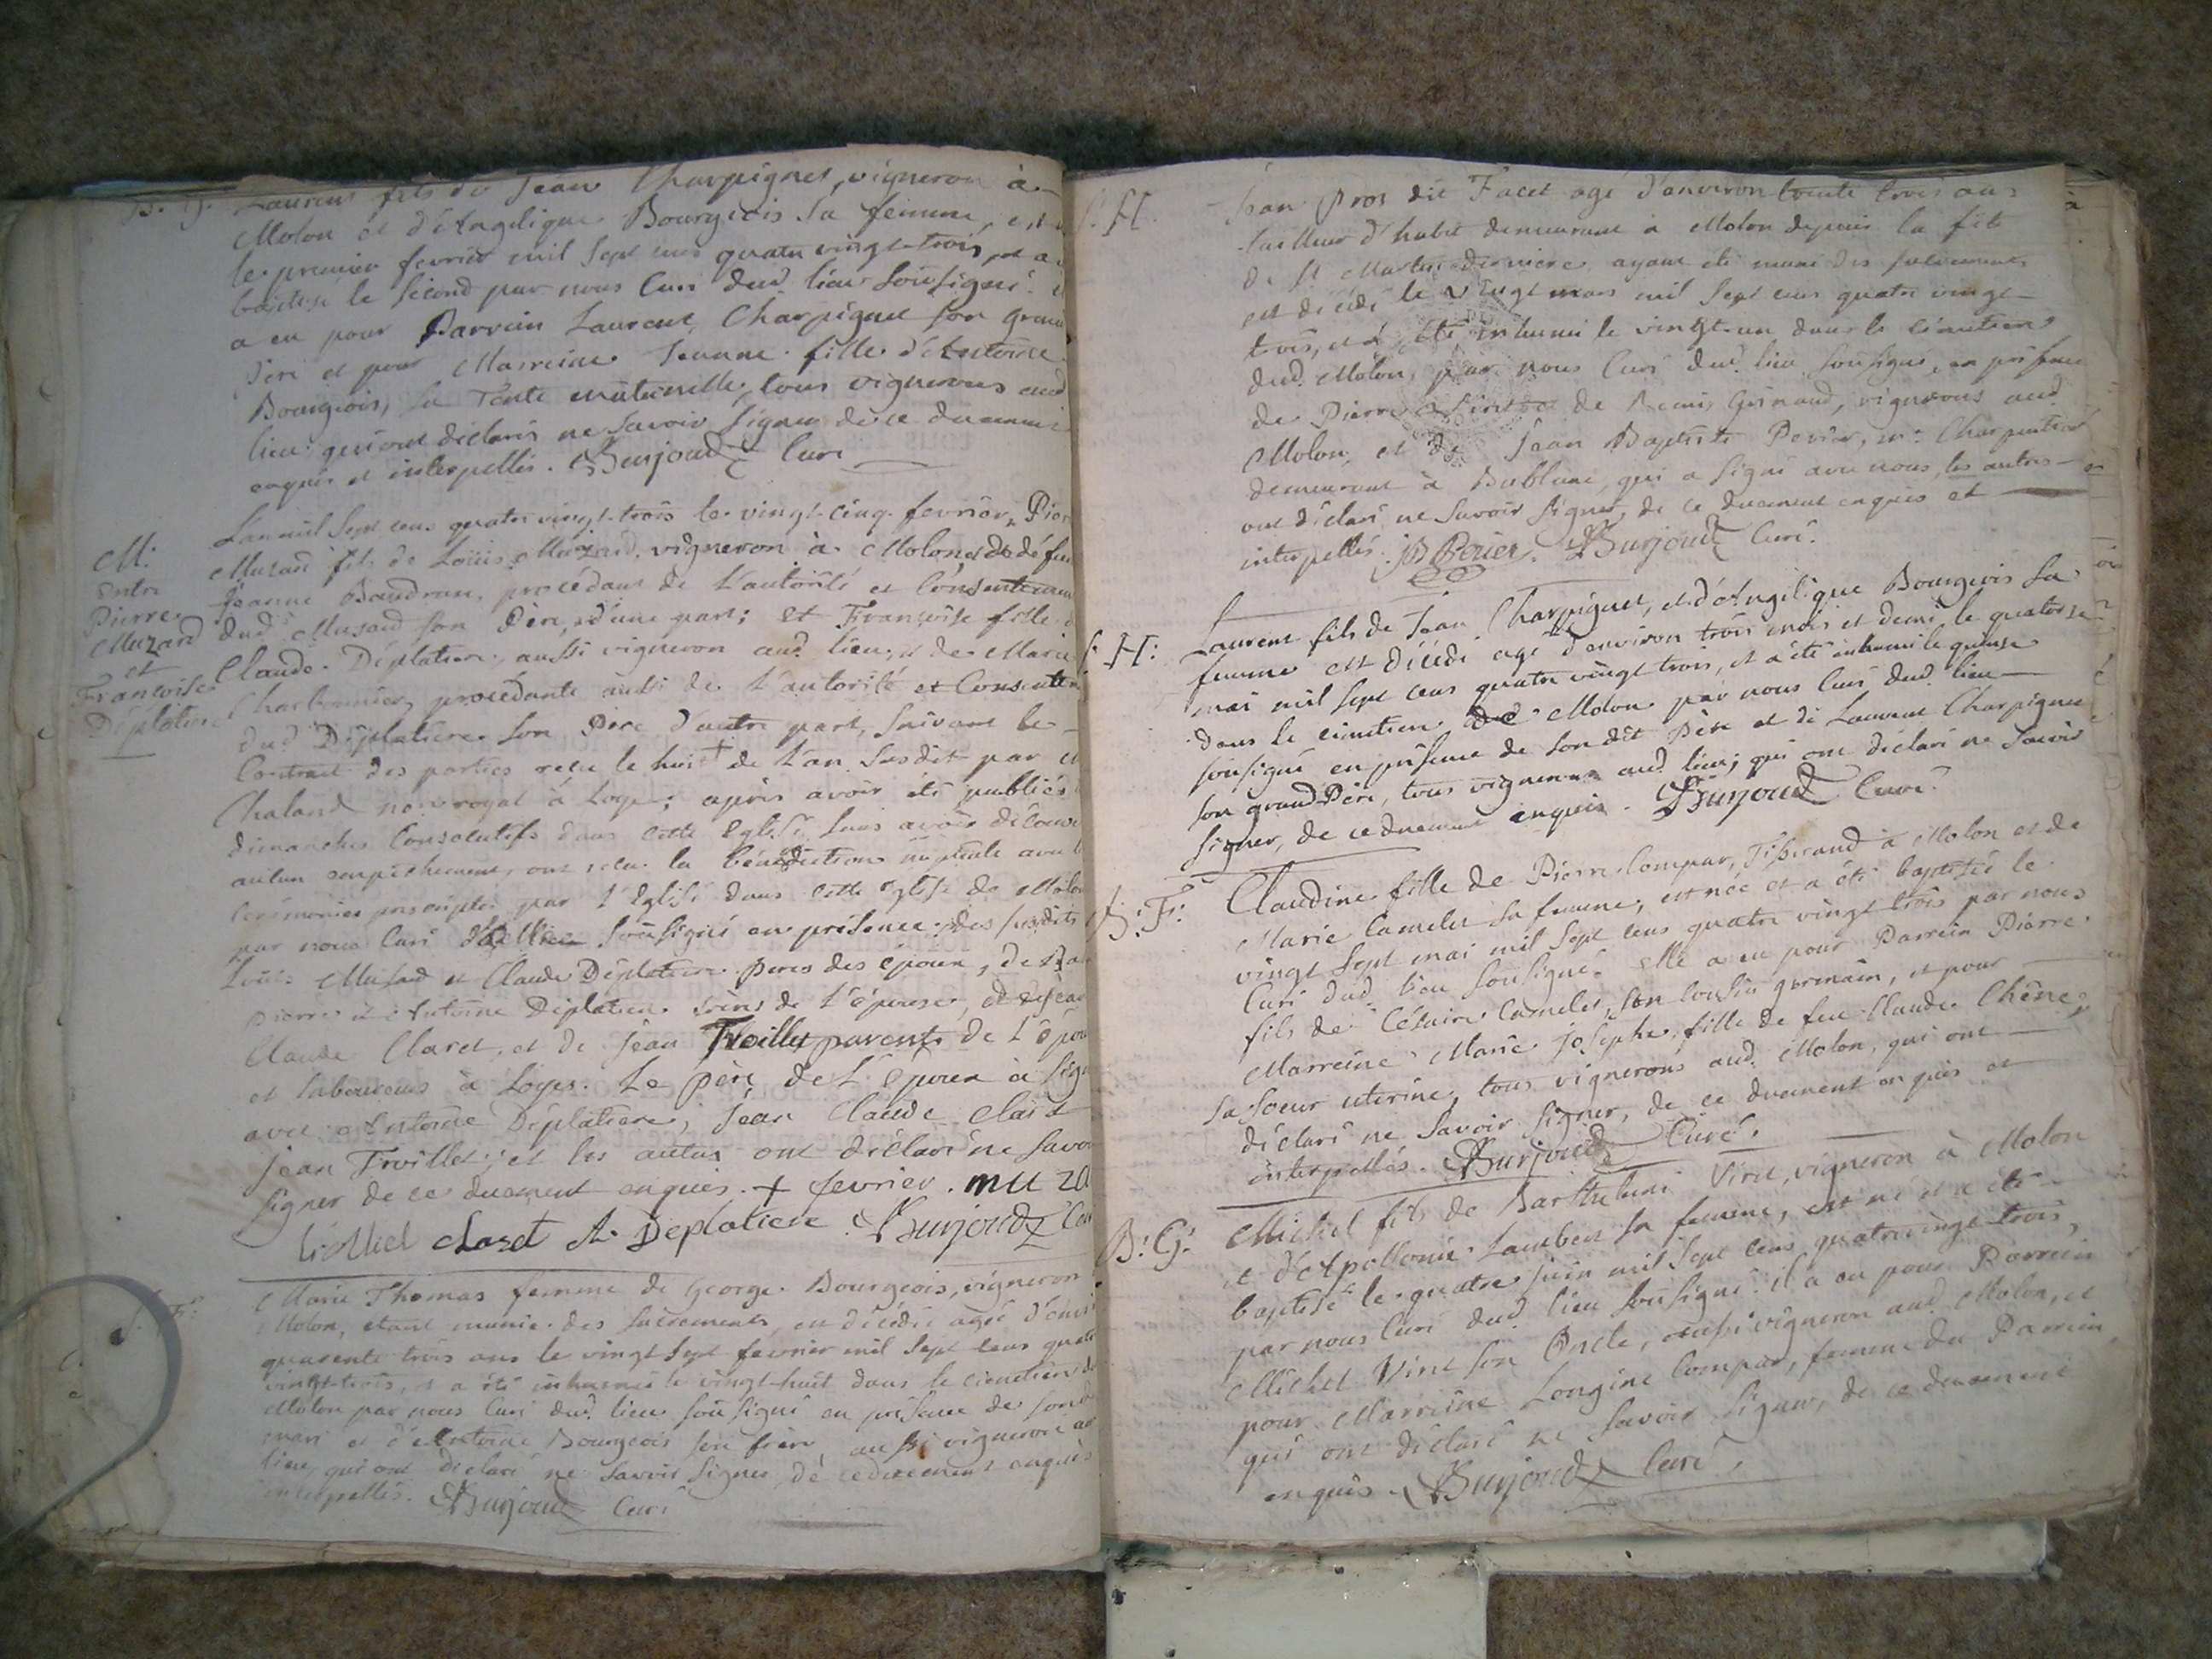 B. G. Laurent fils de Jean Charpignet, vigneron à
Molon et d'Angélique Bourgeois sa femme, est
le premier fevrier mil sept cens quatre vingt-trois, et a
baptisé le second par nous Curé dud. lieu sousigné. il
a eu pour Parrein Laurent Charpignet son grand
Père et pour Marreine Jeanne fille d'Antoine
Bourgeois, sa Tente maternelle, tous vignerons aud
lieu qui ont déclarés ne savoir signer de ce duement
enquis et interpellés. Burjoud Curé
M:
Entre
Pierre
Muzard
et
Françoise
Déplatiere
L'an mil sept cens quatre vingt-trois le vingt-cinq fevrier, Pier
Muzard fils de Loüis Muzard, vigneron à Molon, et de défun
Jeanne Baudran, procédant de l'autorité et Consentemen
dud Musard son Père, d'une part; et Françoise fille
Claude Déplatiere, aussi vigneron aud. lieu, et de Marie
Charbonnier, procédante aussi de l'autorité et Consentem
dud Déplatiere son Père d'autre part, suivant le
Contrat des parties recu le huit + de l'an susdit par
Chaland nre royal à Loyes; après avoir été publiés
dimanches Consécutifs dans cette Eglise sans avoir découv
aucun empêchement, ont recu la bénédiction nuptiale avec l
cerémonies prescriptes par l'Eglise dans cette église de Molon
par nous Curé dud lieu sousigné en présence des susdits
Loüis Musard et Claude Déplatiere peres des époux, de
Pierre et Antoine Déplatiere frères de l'épouse, et de Jean
Claude Claret, et de Jean Troillet parents de l'épou
et laboureurs à Loyes. Le père de l'époux a sign
avec Antoine Déplatiere, Jean Claude Claret
Jean Troillet; et les autres ont déclaré ne savoi
signer de ce duement enquis. + fevrier. mu za
Claret A. Deplatiere Burjoud Cur
S. F: Marie Thomas femme de George Bourgeois, vigneron
Molon, étant munie des sacrements, est décédée agée d'envi
quarente trois ans le vingt sept fevrier mil sept cens quatre
vingt-trois, et a été inhumée le vingt-huit dans le cimetiere de
Molon par nous Curé dud. lieu sousigné en présence de sond
mari et d'Antoine Bourgeois son frère aussi vigneron au
lieu, qui ont déclaré ne savoir signer, de ce duement enquis
interpellés. Burjoud Curé
S: H. Jean Pros dit Facet agé d'environ trente trois ans
tailleur d'habit demeurant à Molon depuis la fête
de St Martin derniere ayant été muni des sacrements
est décédé le vingt mars mil sept cens quatre vingt-
trois, et a été inhumé le vingt-un dans le cimetiere
dud. Molon, par nous Curé dud. lieu sousigné, en présence
de Pierre de Remis Guinaud, vignerons aud
Molon, et de Jean Baptiste Perier, me Charpentier
demeurant à Bublane, qui a signé avec nous, les autres
ont déclaré ne savoir signer, de ce duement enquis et
interpellés. JB Perier Burjoud Curé.
S: H: Laurent fils de Jean Charpignet, et d'Angélique Bourgeois sa
femme est décédé agé d'environ trois mois et demi le quatorze
mai mil sept cens quatre vingt trois, et a été inhumé le quinse
dans le cimetiere dud Molon par nous Curé dud. lieu
sousigné en présence de sondit Père et de Laurent Charpignet
son grand Père, tous vignerons aud. lieu; qui ont déclaré ne savoir
signer, de ce duement enquis. Burjoud Curé.
B: F: Claudine fille de Pierre Compar, Tisserand à Molon et de
Marie Camelet sa femme, est née et a été baptisée le
vingt sept mai mil sept cens quatre vingt trois par nous
Curé dud. lieu sousigné. elle a eu pour Parrein Pierre
fils de Césaire Camelet, son Cousin germain, et pour
Marreine Marie Josephe, fille de feu Claude Chêne,
sa soeur uterine, tous vignerons aud. Molon, qui ont
déclaré ne savoir signer, de ce duement enquis et
interpellés. Burjoud Curé.
B: G: Michel fils de Barthelemi Viret, vigneron à Molon
et d'Apollonie Lambert sa femme, est né et a été
baptisé le quatre juin mil sept cens quatre vingt trois,
par nous Curé dud. lieu sousigné. il a eu pour Parrein
Michel Viret son Oncle, aussi vigneron aud. Molon, et
pour Marreine Longine Compar, femme du Parrein,
qui ont déclaré ne savoir signer, de ce duement
enquis. Burjoud Curé.